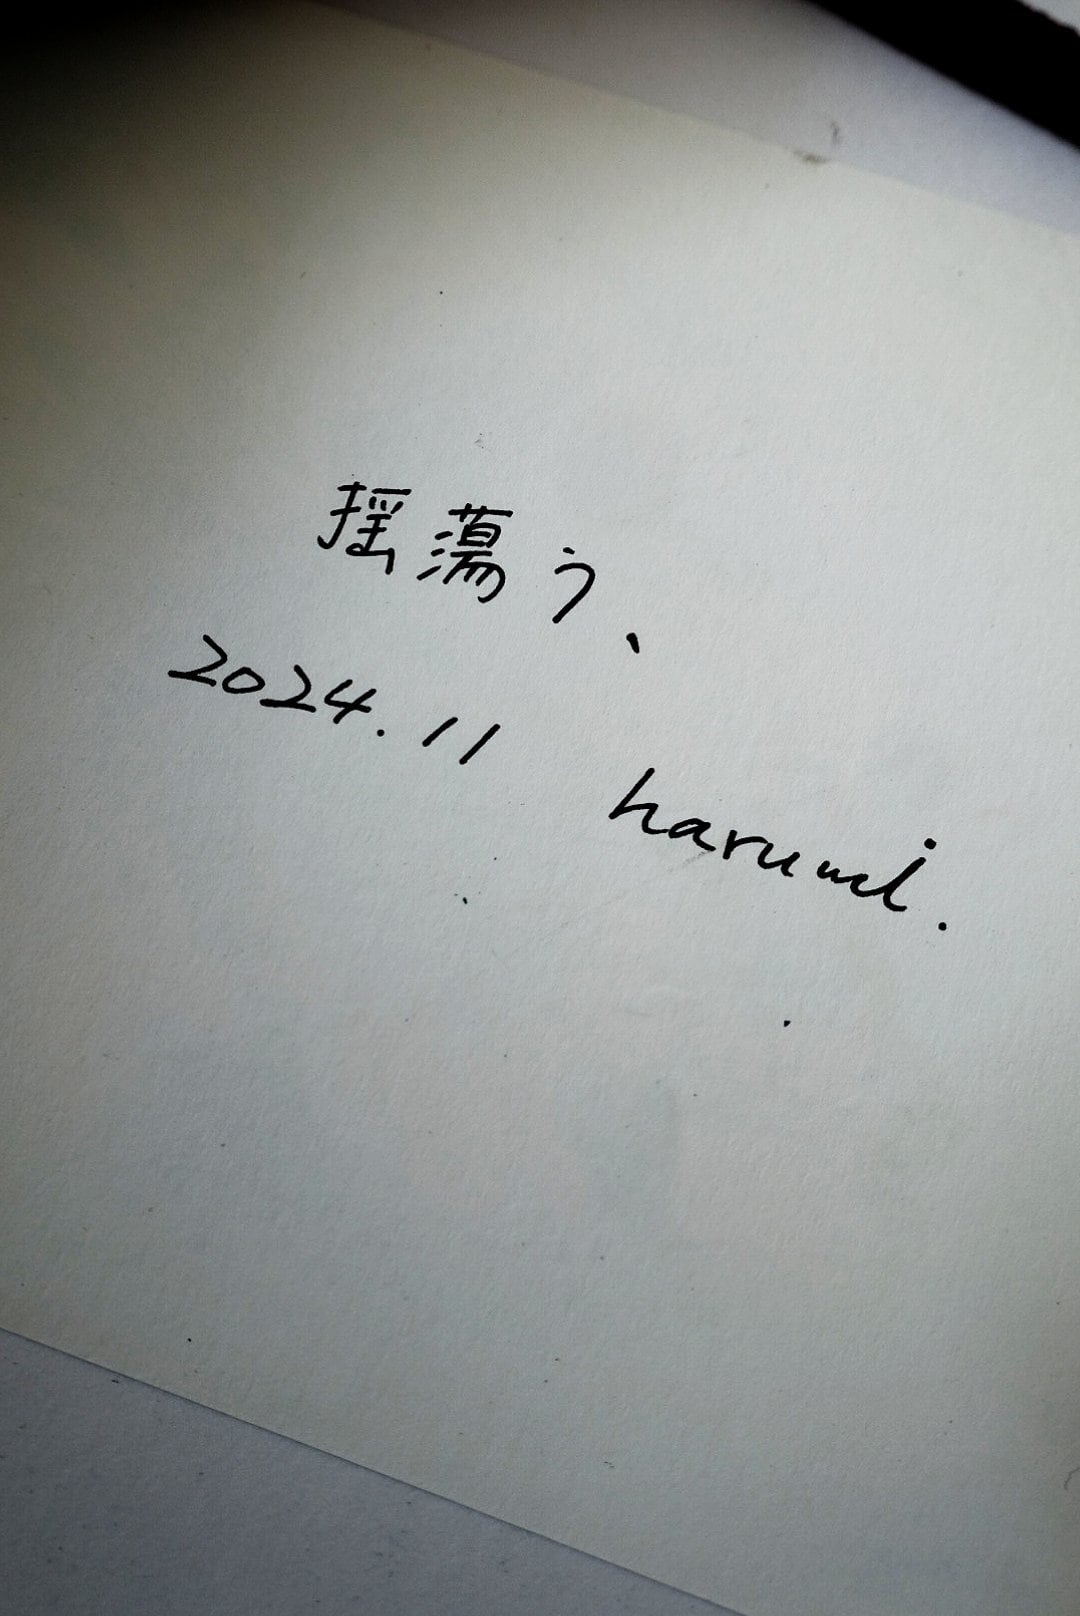 揺蕩う、
2024.11
harumi.